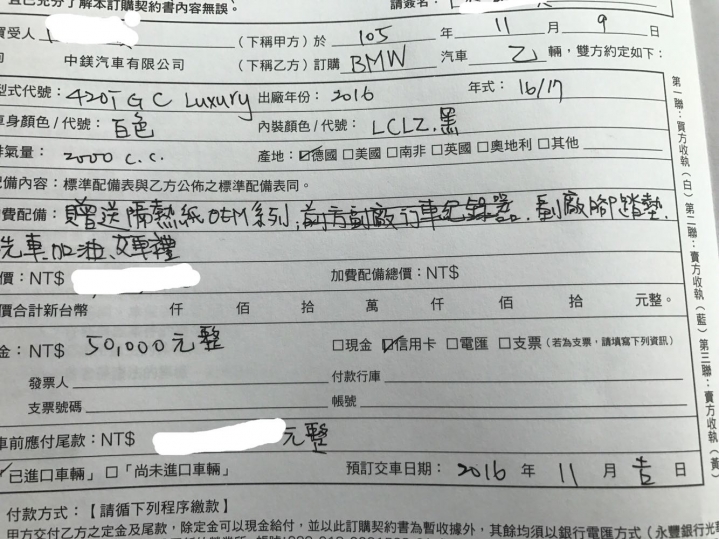 且已充分了解本訂購契約書內容無誤。 請簽名:
買受人 (下稱甲方)於 105 年 11 月 9 日
向 中鎂汽車有限公司 (下稱乙方)訂購 BMW 汽車 乙 輛,雙方約定如下:
型式代號: 420i GC Luxury 出廠年份: 2016 年式: 16/17
車身顏色/代號: 白色 內裝顏色/代號: LCLZ.黑
排氣量: 2000 c.c. 產地: ☑德國 □美國 □南非 □英國 □奧地利 □其他
配備內容:標準配備表與乙方公佈之標準配備表同。
加費配備: 贈送隔熱紙OEM系列,前方副廠行車紀錄器.副廠腳踏墊.
洗車加油、交車禮
價:NT$ 加費配備總價:NT$
價合計新台幣 仟 佰 拾 萬 仟 佰 拾 元整。
金:NT$ 50,000元整 □現金 ☑信用卡 □電匯 □支票(若為支票,請填寫下列資訊)
發票人 付款行庫
支票號碼 帳號
車前應付尾款:NT$ 元整
☑已進口車輛」□「尚未進口車輛」 預訂交車日期: 2016 年 11 月 吉 日
付款方式:【請循下列程序繳款】
甲方交付乙方之定金及尾款,除定金可以現金給付,並以此訂購契約書為暫收據外,其餘均須以銀行電匯方式(永豐銀行光華
第一聯:買方收執(白)第二聯:賣方收執(藍)第三聯:賣方收執(黃)